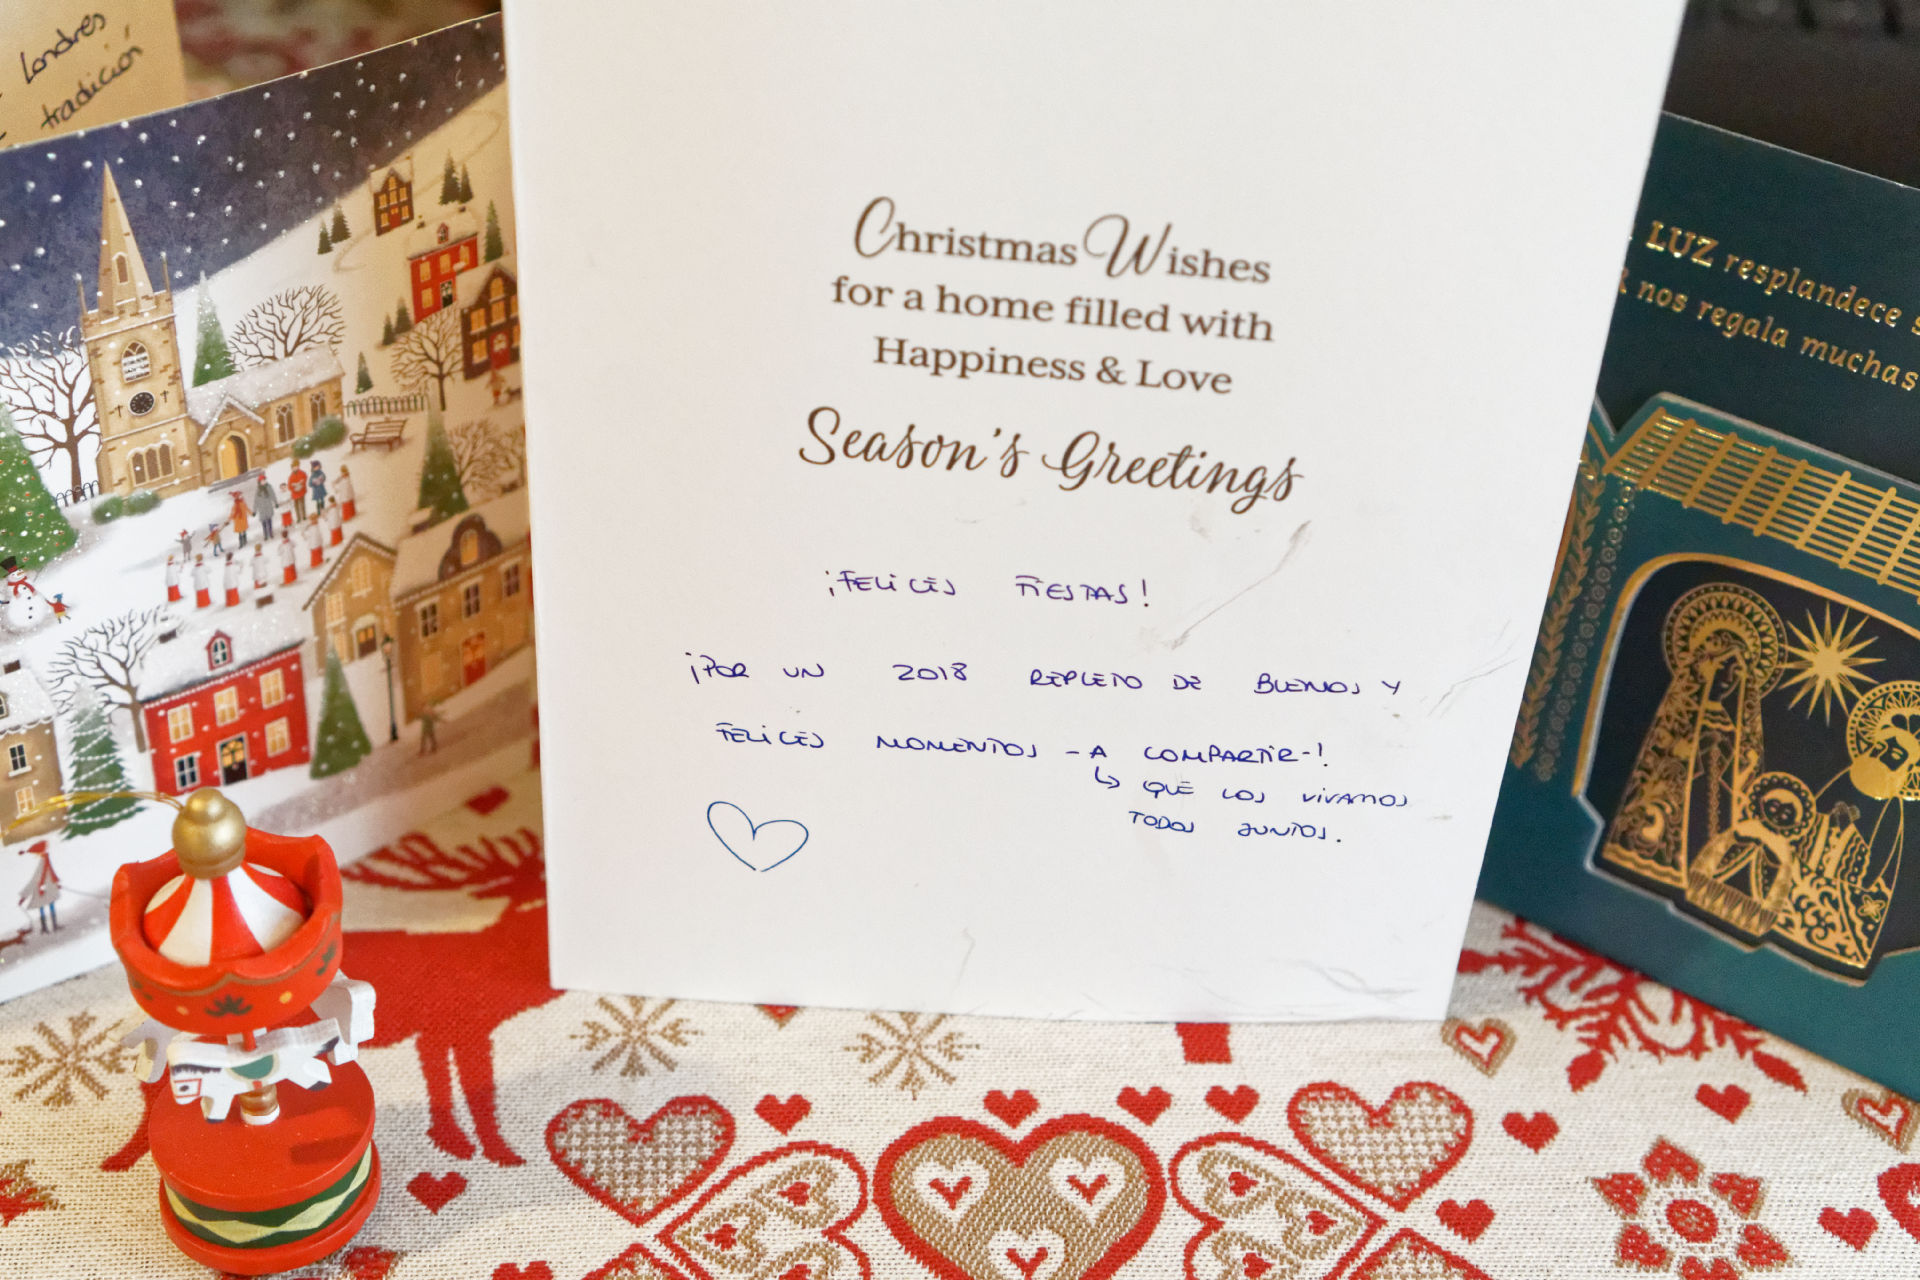 Londres
tradición
Christmas Wishes
for a home filled with
Happiness & Love
Season's Greetings
¡FELICES FIESTAS!
¡POR UN 2018 REPLETO DE BUENOS Y
FELICES MOMENTOS - A COMPARTIR -!
↳ QUE LOS VIVAMOS
TODOS JUNTOS.
LUZ resplandece
nos regala muchas